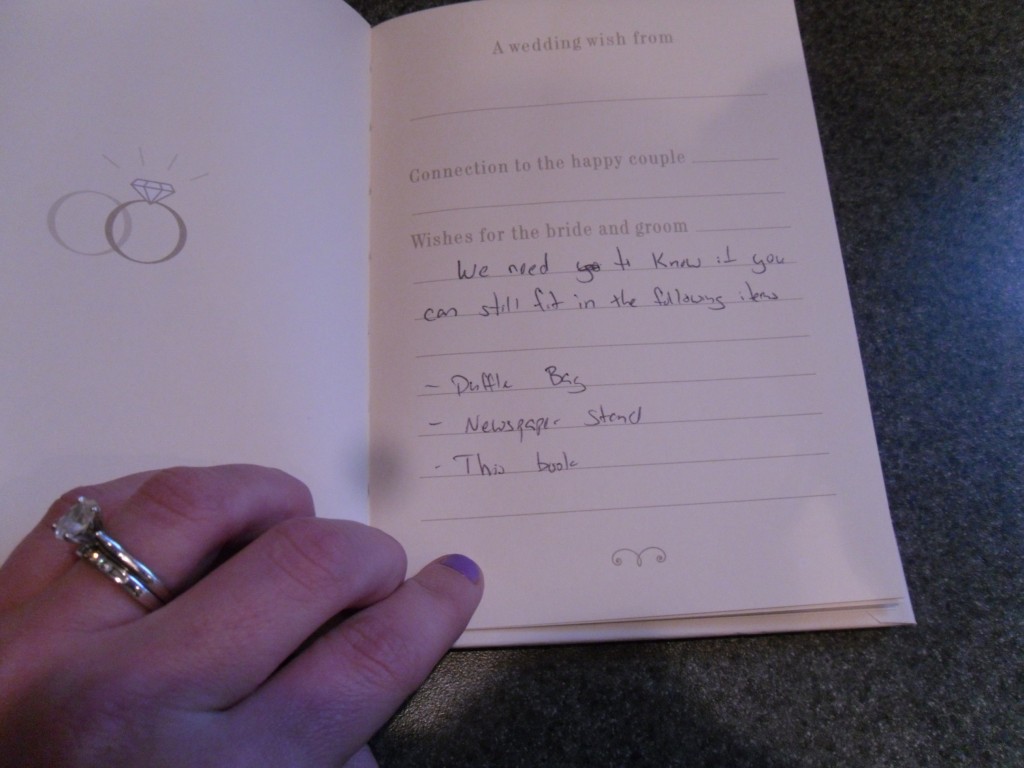 A wedding wish from
Connection to the happy couple
Wishes for the bride and groom
We need to know if you
can still fit in the following items
- Duffle Bag
- Newspaper Stand
- This book